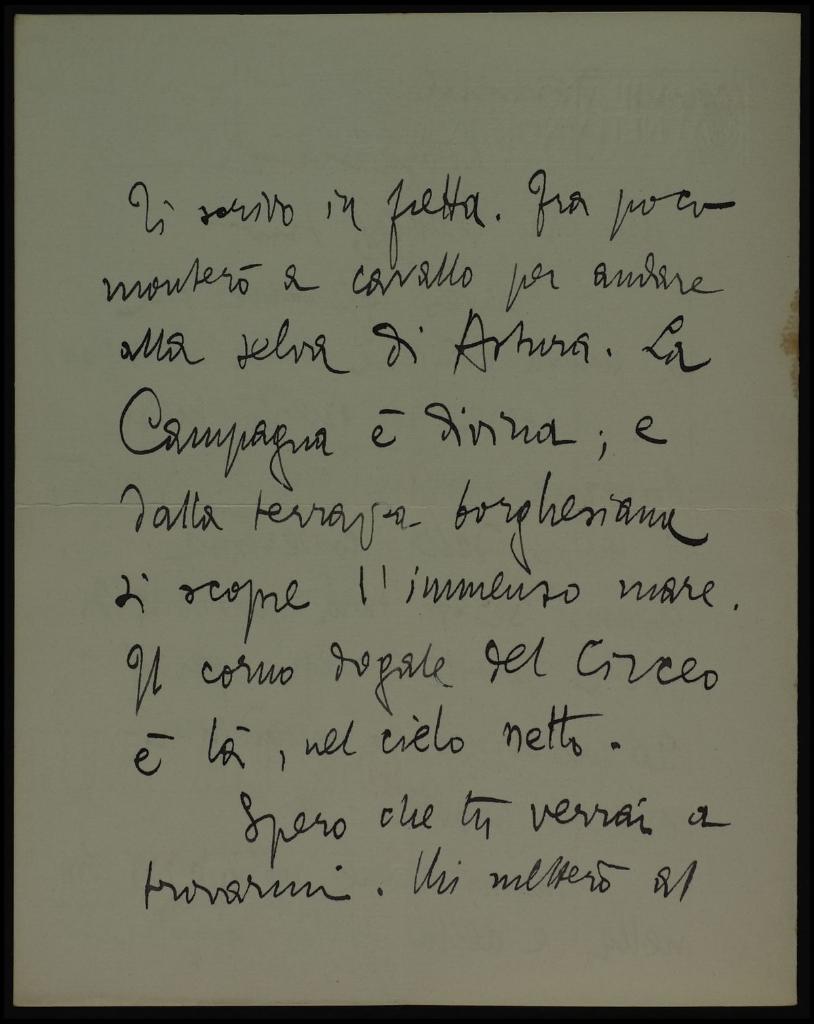 Ti scrivo in fretta. Fra poco
monterò a cavallo per andare
alla selva di Astura. La
Campagna è divina; e
dalla terrazza borghesiana
si scopre l'immenso mare.
Il corno dogale del Circeo
è là, nel cielo netto.
Spero che tu verrai a
trovarmi. Mi metterò al